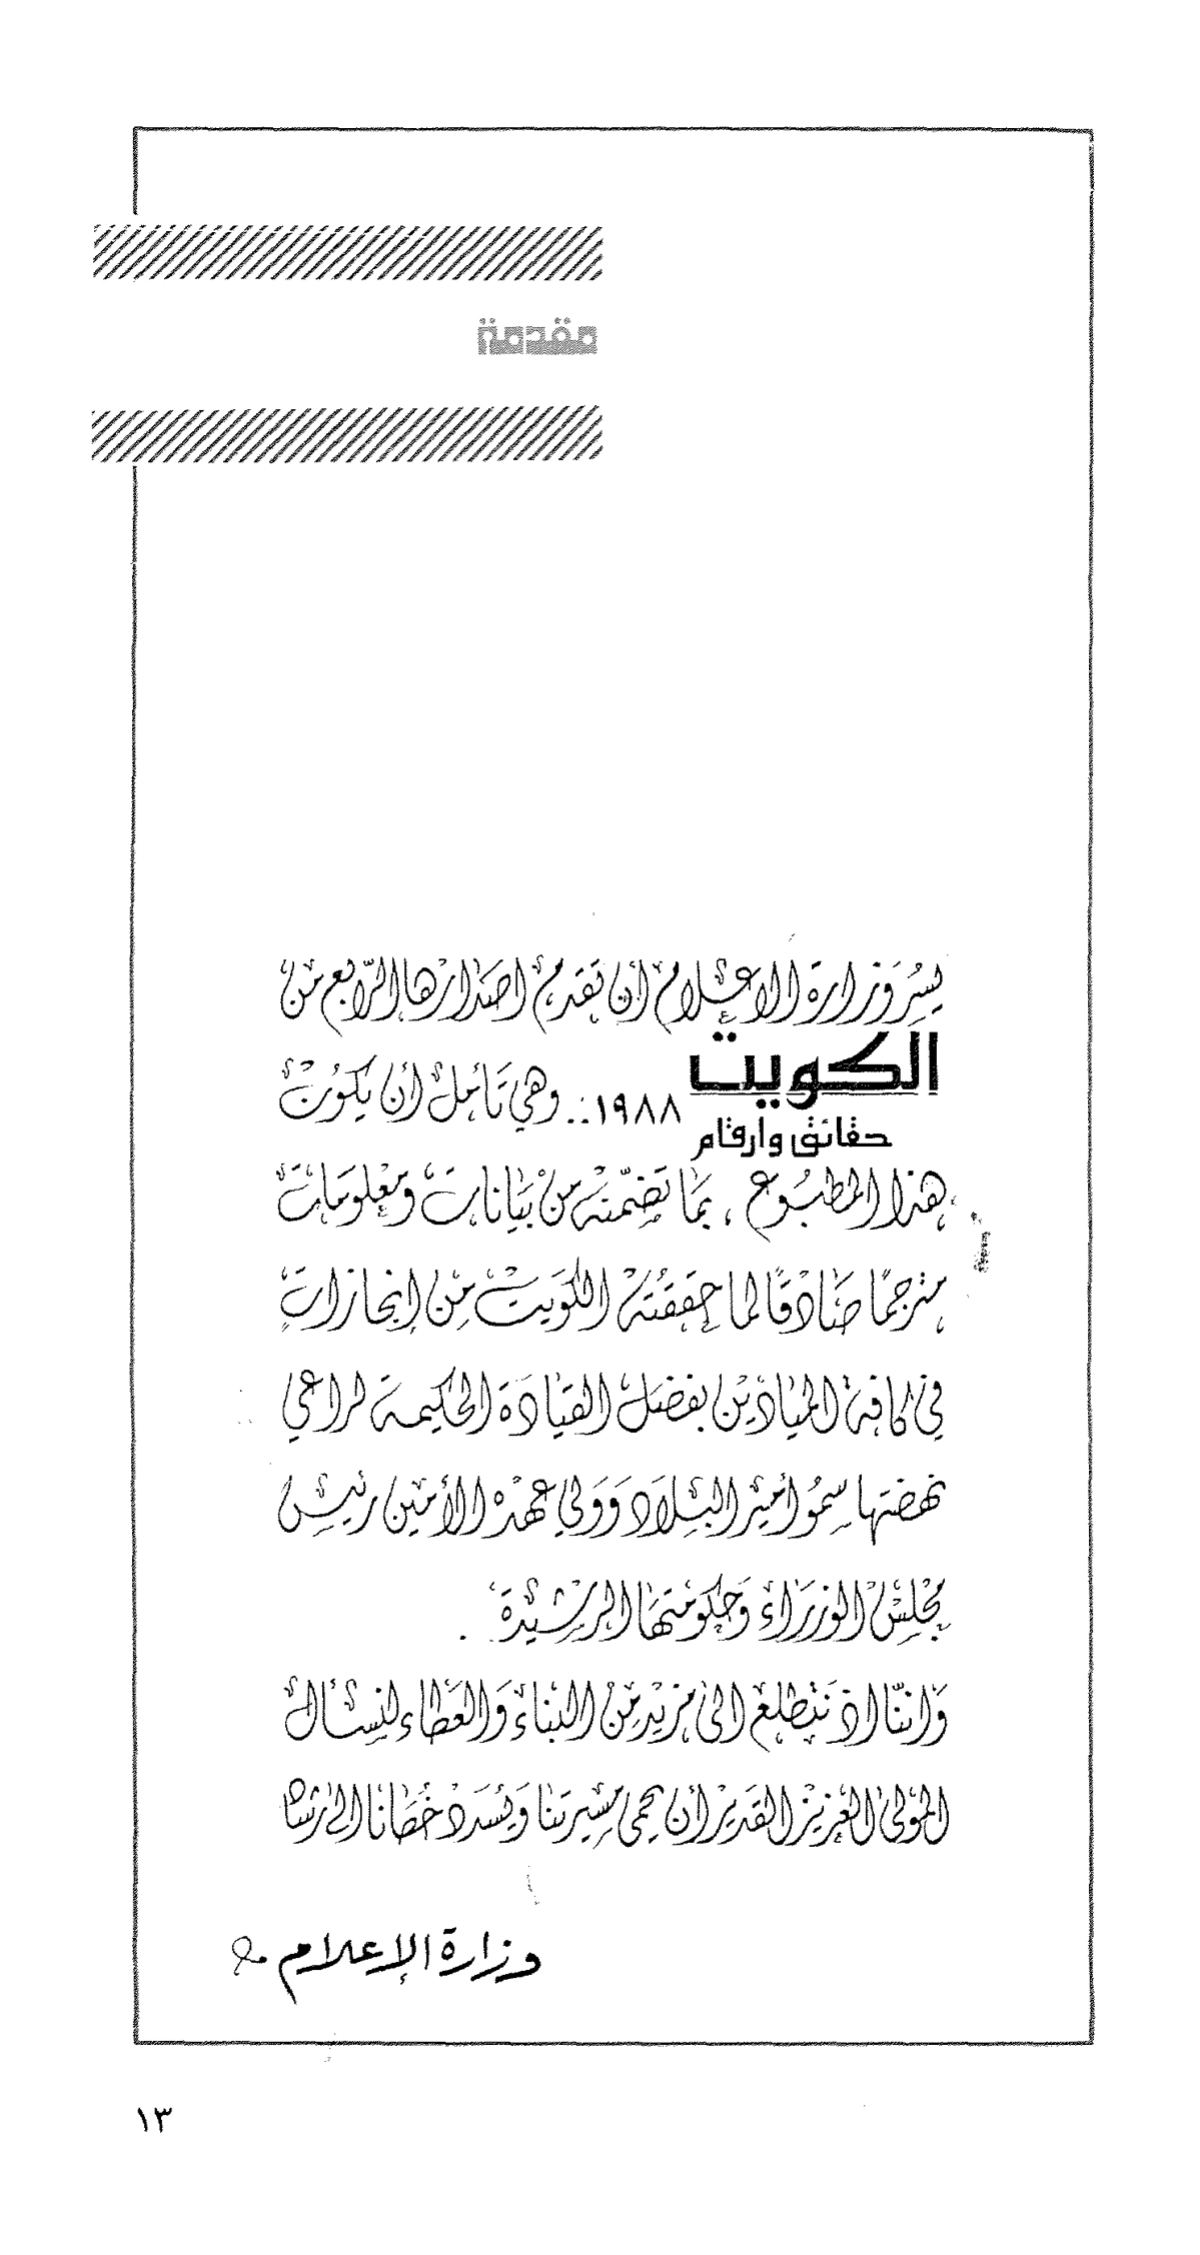 مقدمة
يسر وزارة الاعلام أن تقدم اصدارها الرابع من
الكويت
حقائق وارقام
١٩٨٨ .. وهي تأمل أن يكون
هذا المطبوع ، بما تضمنه من بيانات ومعلومات
مترجمًا صادقًا لما حققته الكويت من إنجازات
في كافة الميادين بفضل القيادة الحكيمة لراعي
نهضتها سمو أمير البلاد وولي عهده الأمين رئيس
مجلس الوزراء وحكومتها الرشيدة .
واننا اذ نتطلع الى مزيد من البناء والعطاء لنسأل
المولى العزيز القدير أن يحمي مسيرتنا ويسدد خطانا الى
وزارة الإعلام
١٣